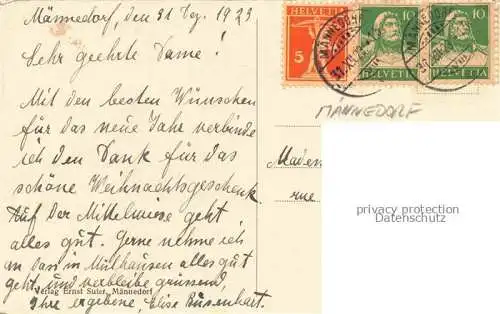 Männedorf, den 31 Dez. 1923
Sehr geehrte Dame!
Mit den besten Wünschen
für das neue Jahr verbinde
ich den Dank für das
schöne Weihnachtsgeschenk
Auf der Mittelwiese geht
alles gut. Gerne nehme ich
an dass in Mülhausen alles gut
geht und verbleibe grüssend,
Ihre ergebene, Elise Büsenhart.
Verlag Ernst Suter, Männedorf
HELVETIA
5
10
HELVETIA
10
HELVETIA
MÄNNEDORF
MÄNNEDORF
MÄNNEDORF
Madem
rue
privacy protection
Datenschutz